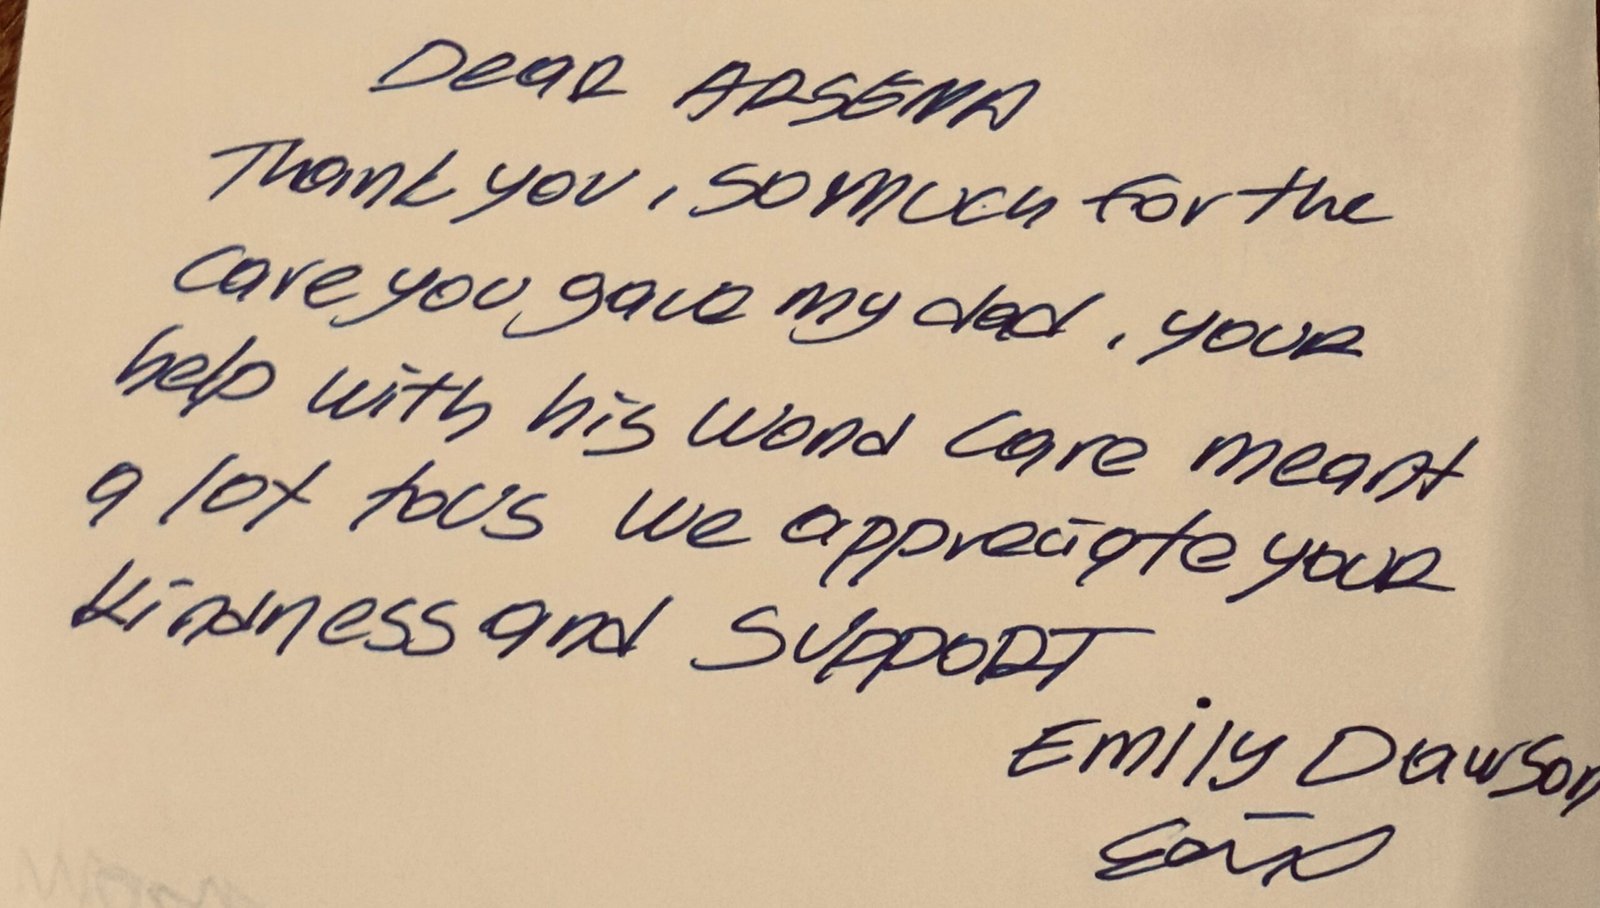 Dear ARSENA
Thank you, so much for the
care you gave my dad, your
help with his wond care meant
a lot to us we appreciate your
kindness and SUPPORT
Emily Dawson